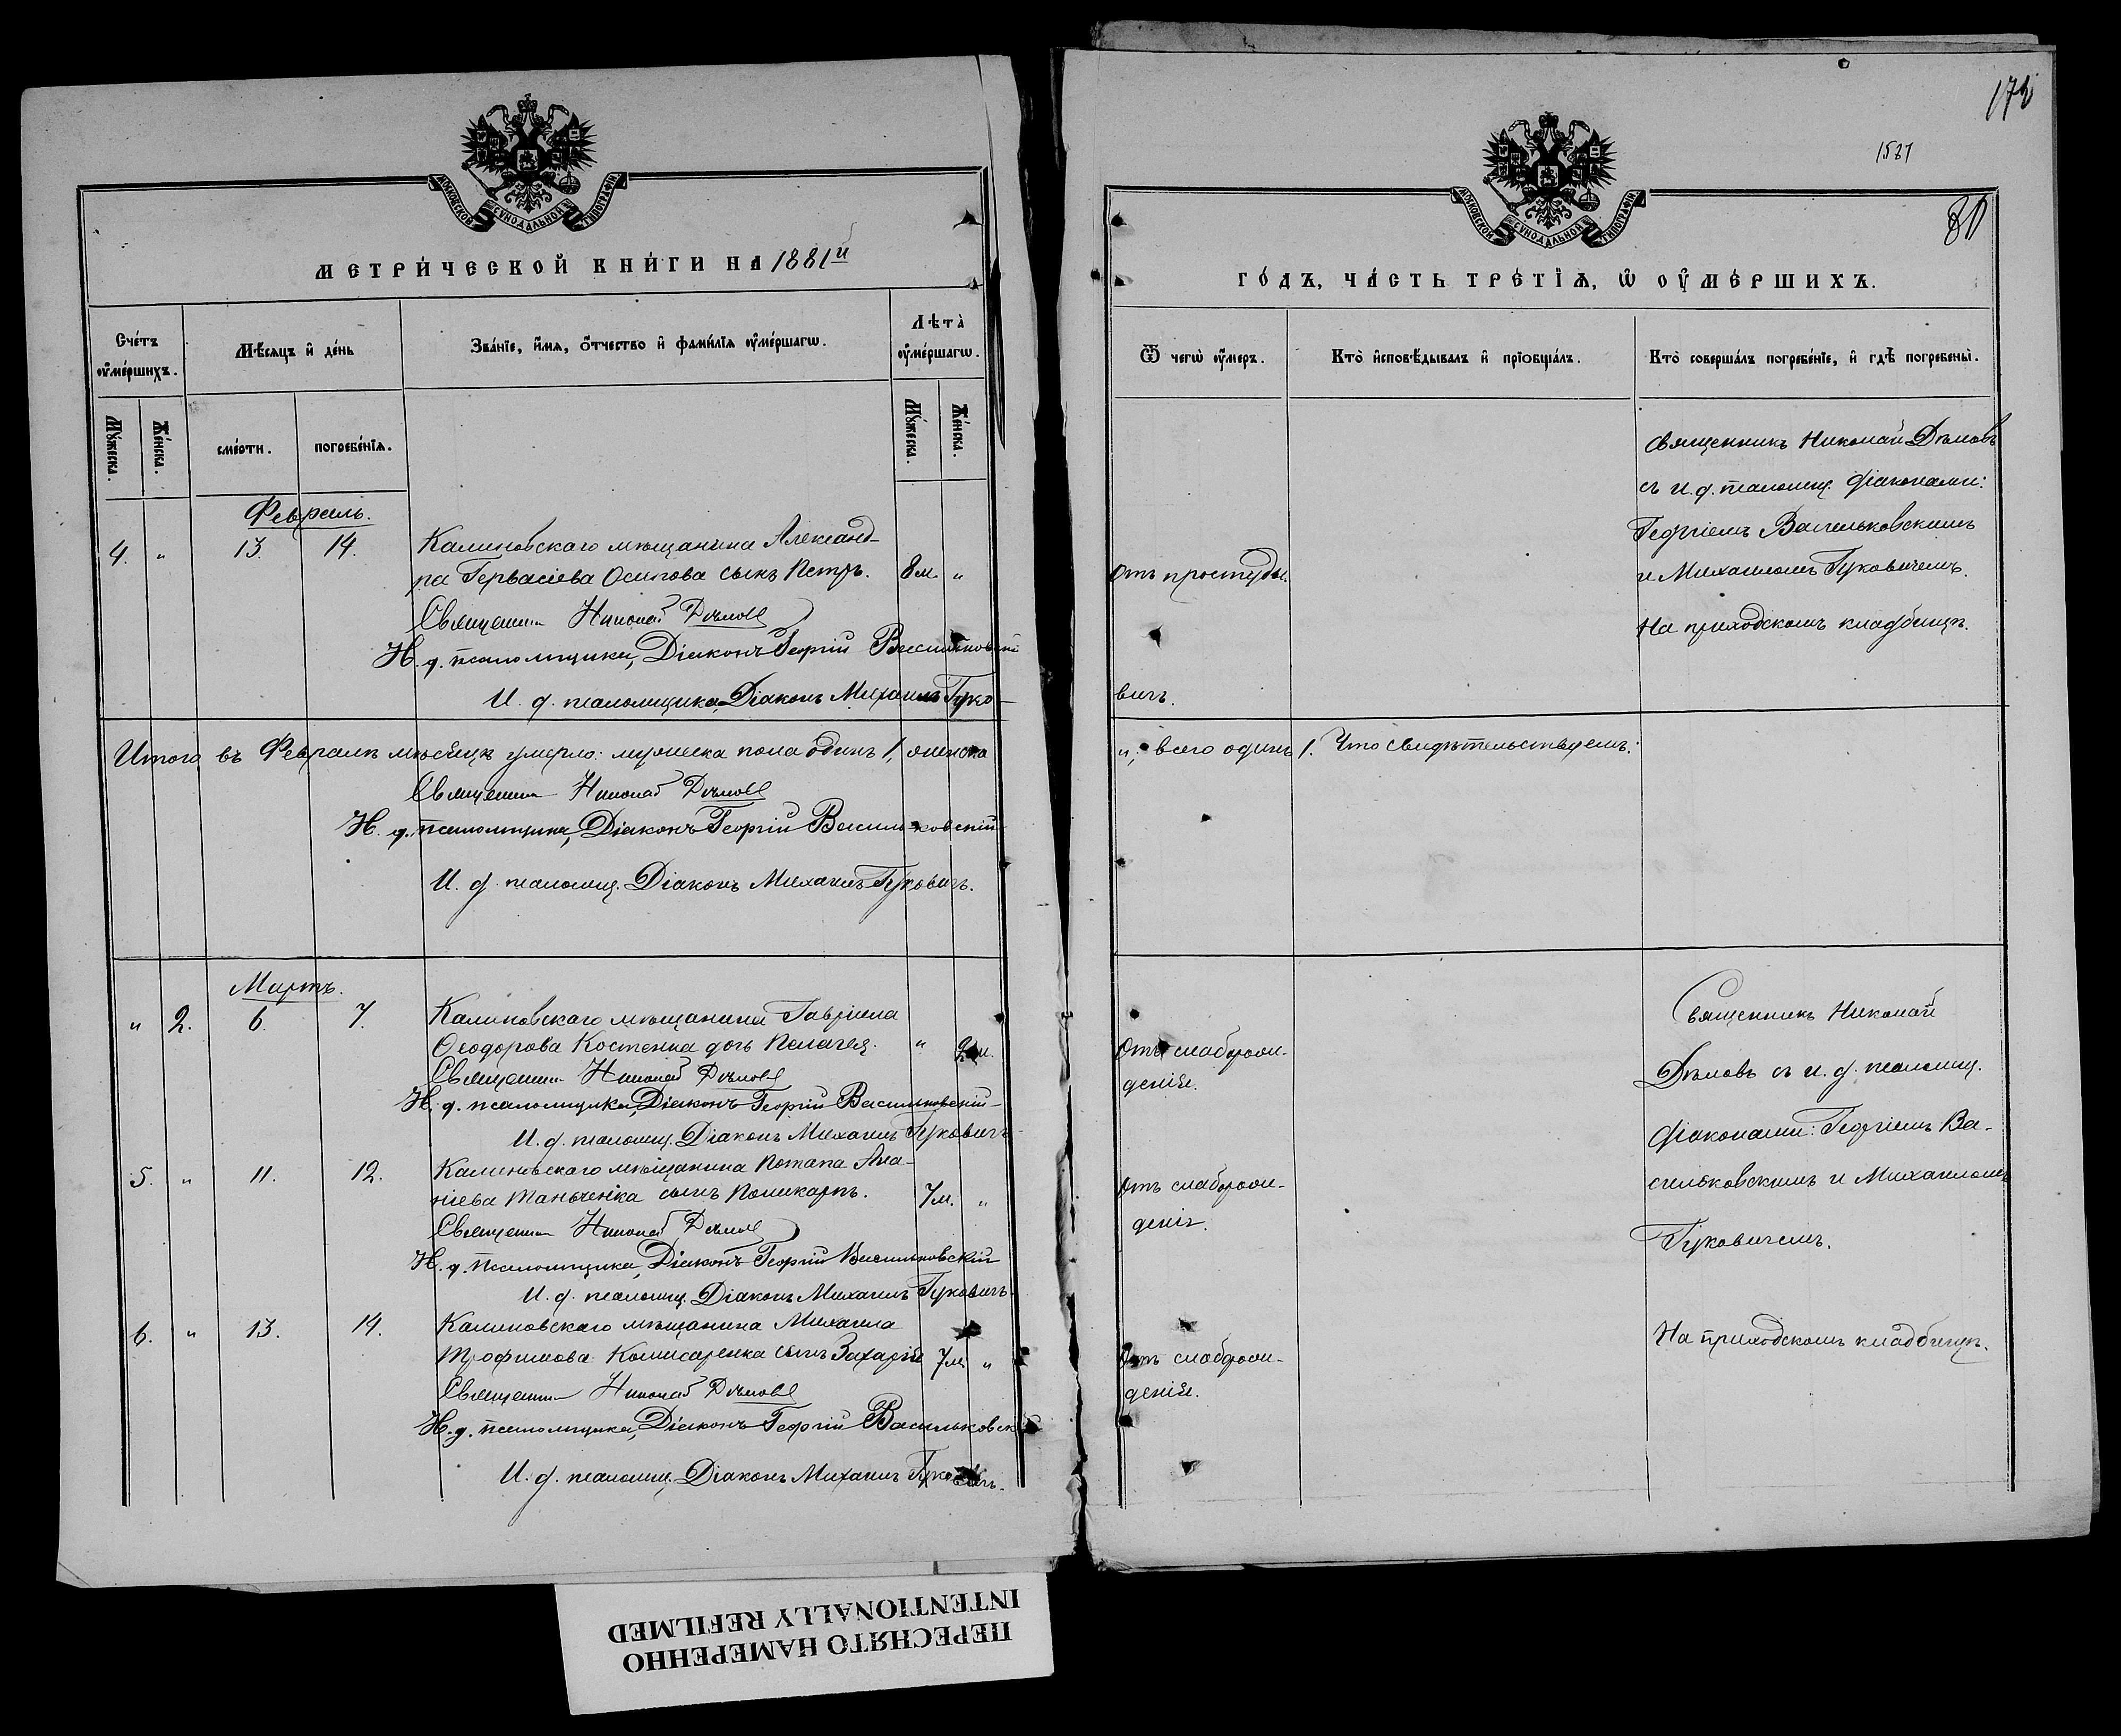 МОСКОВСКОЙ СѴНОДАЛЬНОЙ ТИПОГРАФІИ
МЕТРИ́ЧЕСКОЙ КНИ́ГИ НА 1881й
Сче́тъ ᲂу҆ме́ршихъ.
Мѣ́сяцъ и҆ де́нь
Зва́нїе, и҆́мѧ, ѻ҆́тчество и҆ фами́лїѧ ᲂу҆ме́ршагѡ.
Лѣта̀ ᲂу҆ме́ршагѡ.
Мꙋ́жеска.
Же́нска.
сме́рти.
погребе́нїѧ.
Мꙋ́жеска.
Же́нска.
Февраль.
4. " 13. 14. Калиновскаго мѣщанина Александ-
ра Гервасіева Осипова сынъ Петръ. 8 м. "
Священникъ Николай Дѣмовъ
И. д. псаломщика, Діаконъ Георгій Васильковскій
И. д. псаломщика, Діаконъ Михаилъ Гуко-
Итого въ Февралѣ мѣсяцѣ умерло: мужеска пола одинъ 1, женска
Священникъ Николай Дѣмовъ
И. д. псаломщика, Діаконъ Георгій Васильковскій
И. д. псаломщ. Діаконъ Михаилъ Гуковичъ.
Мартъ.
" 2. 6. 7. Калиновскаго мѣщанина Гавріила
Ѳеодорова Костенка дочь Пелагея. " 2 м.
Священникъ Николай Дѣмовъ
И. д. псаломщика, Діаконъ Георгій Васильковскій
И. д. псаломщ. Діаконъ Михаилъ Гуковичъ
5. " 11. 12. Калиновскаго мѣщанина Потапа Ана-
ніева Таньченка сынъ Поликарпъ. 7 м. "
Священникъ Николай Дѣмовъ
И. д. псаломщика, Діаконъ Георгій Васильковскій
И. д. псаломщ. Діаконъ Михаилъ Гуковичъ.
6. " 13. 14. Калиновскаго мѣщанина Михаила
Трофимова Комисаренка сынъ Захарій 7 м. "
Священникъ Николай Дѣмовъ
И. д. псаломщика, Діаконъ Георгій Васильковскій
И. д. псаломщ. Діаконъ Михаилъ Гуковичъ.
1531
МОСКОВСКОЙ СѴНОДАЛЬНОЙ ТИПОГРАФІИ
ГО́ДЪ, ЧА́СТЬ ТРЕ́ТЇѦ, Ѡ҆ ОУ҆МЕ́РШИХЪ.
Ѿ чегѡ̀ ᲂу҆́меръ.
Кто̀ и҆сповѣ́дывалъ и҆ прїобща́лъ.
Кто̀ соверша́лъ погребе́нїе, и҆ гдѣ̀ погребены̀.
Священникъ Николай Дѣмовъ
съ и. д. псаломщ. діаконами:
Георгіемъ Васильковскимъ
Отъ простуды. и Михаиломъ Гуковичемъ.
На приходскомъ кладбищѣ.
вичъ.
"; всего одинъ 1. Что свидѣтельствуемъ:
Священникъ Николай
Отъ слаборож-
денія.
Дѣмовъ съ и. д. псаломщ.
діаконами: Георгіемъ Ва-
Отъ слаборож-
денія.
сильковскимъ и Михаиломъ
Гуковичемъ.
Отъ слаборож-
денія.
На приходскомъ кладбищѣ.
ПЕРЕСНЯТО НАМЕРЕННО
INTENTIONALLY REFILMED